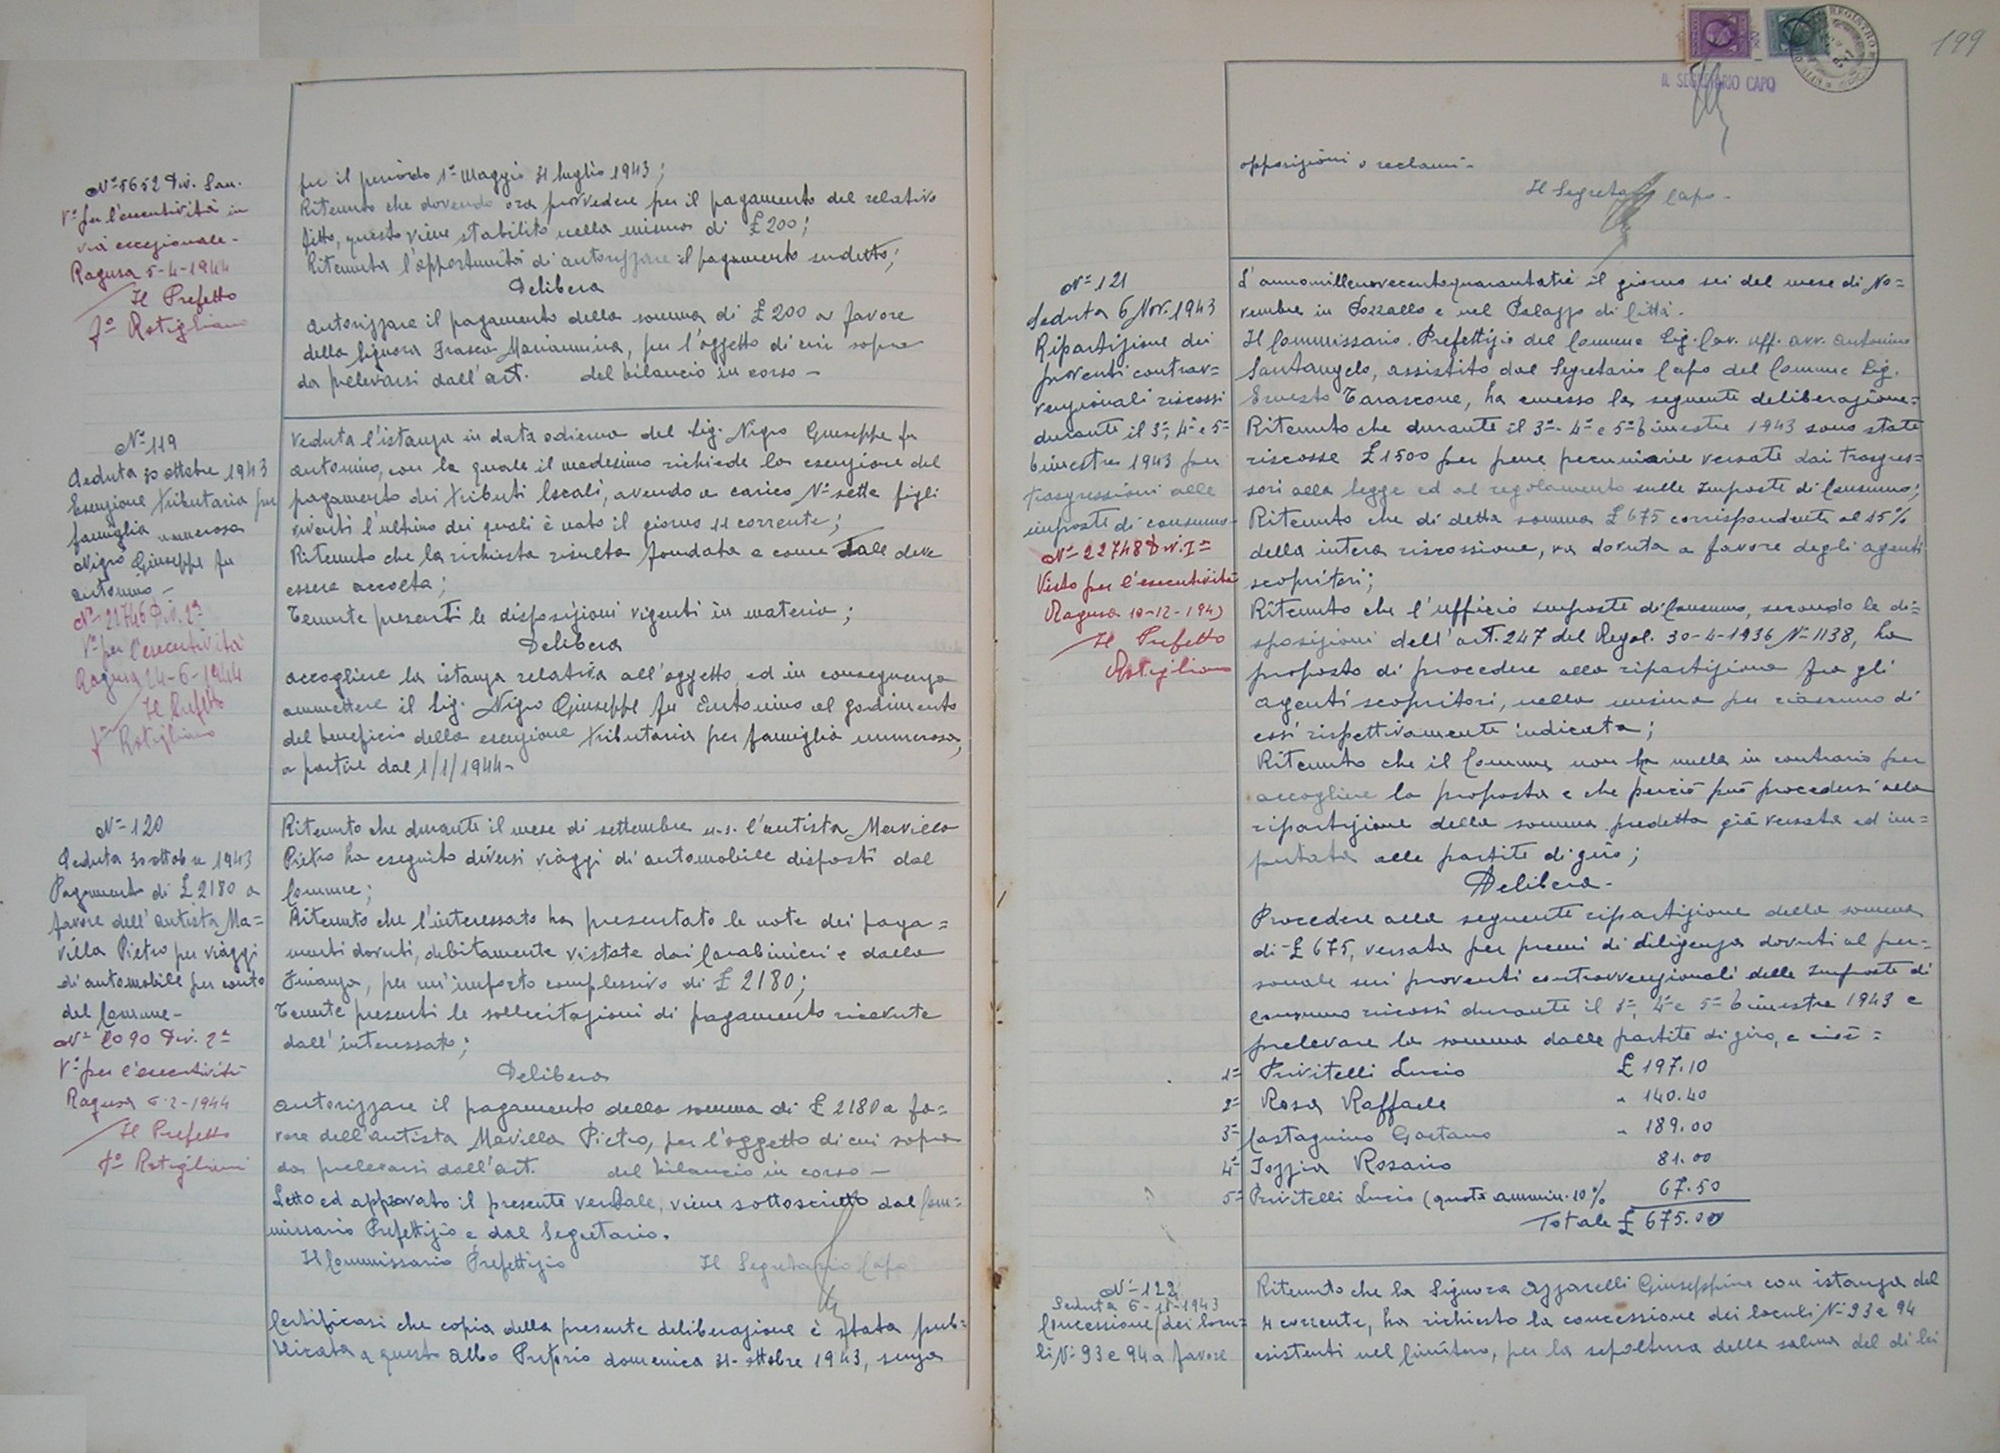 N° 5652 Div. San.
V° per l'esecutività in
via eccezionale -
Ragusa 5-4-1944
Il Prefetto
f° Rotigliano
per il periodo 1° Maggio 31 luglio 1943;
Ritenuto che dovendo ora provvedere per il pagamento del relativo
fitto, questo viene stabilito nella misura di £ 200;
Ritenuta l'opportunità di autorizzare il pagamento sudetto;
Delibera
autorizzare il pagamento della somma di £ 200 a favore
della Signora Frasca Mariannina, per l'oggetto di cui sopra
da prelevarsi dall'art. del bilancio in corso -
N° 119
Seduta 30 ottobre 1943
Esenzione tributaria per
famiglia numerosa
Nigro Giuseppe fu
Antonino -
N° 21746 Div. 2ª
V° per l'esecutività
Ragusa 24-6-1944
Il Prefetto
f° Rotigliano
Veduta l'istanza in data odierna del Sig. Nigro Giuseppe fu
Antonino, con la quale il medesimo richiede la esenzione del
pagamento dei tributi locali, avendo a carico N° sette figli
viventi l'ultimo dei quali è nato il giorno 11 corrente;
Ritenuto che la richiesta risulta fondata e come tale deve
essere accolta;
Tenute presenti le disposizioni vigenti in materia;
Delibera
accogliere la istanza relativa all'oggetto, ed in conseguenza
ammettere il Sig. Nigro Giuseppe fu Antonino al godimento
del beneficio della esenzione tributaria per famiglia numerosa,
a partire dal 1/1/1944 -
N° 120
Seduta 30 ottobre 1943
Pagamento di £ 2180 a
favore dell'autista Ma=
villa Pietro per viaggi
di automobile per conto
del Comune -
N° 2090 Div. 2ª
V° per l'esecutività
Ragusa 6-2-1944
Il Prefetto
f° Rotigliano
Ritenuto che durante il mese di settembre u.s. l'autista Mavilla
Pietro ha eseguito diversi viaggi di automobile disposti dal
Comune;
Ritenuto che l'interessato ha presentato le note dei paga=
menti dovuti, debitamente vistate dai Carabinieri e dalla
Finanza, per un'importo complessivo di £ 2180;
Tenute presenti le sollecitazioni di pagamento ricevute
dall'interessato;
Delibera
autorizzare il pagamento della somma di £ 2180 a fa=
vore dell'autista Mavilla Pietro, per l'oggetto di cui sopra
da prelevarsi dall'art. del bilancio in corso -
Letto ed approvato il presente verbale, viene sottoscritto dal Com=
missario Prefettizio e dal Segretario.
Il Commissario Prefettizio Il Segretario Capo
Certificasi che copia della presente deliberazione è stata pub=
blicata a questo Albo Pretorio domenica 31 - ottobre 1943, senza
199
IL SEGRETARIO CAPO
opposizioni o reclami -
Il Segretario Capo -
N° 121
Seduta 6 Nov. 1943
Ripartizione dei
proventi contrav=
venzionali riscossi
durante il 3°, 4° e 5°
bimestre 1943 per
trasgressioni alle
imposte di consumo -
N° 22748 Div. Iª
Visto per l'esecutività
Ragusa 10-12-1943
Il Prefetto
Rotigliano
L'anno millenovecentoquarantatrè il giorno sei del mese di No=
vembre in Pozzallo e nel Palazzo di Città -
Il Commissario Prefettizio del Comune Sig. Cav. uff. avv. Antonino
Santangelo, assistito dal Segretario Capo del Comune Sig.
Ernesto Tarascone, ha emesso la seguente deliberazione=
Ritenuto che durante il 3° - 4° e 5° bimestre 1943 sono state
riscosse £ 1500 per pene pecuniarie versate dai trasgres=
sori alla legge ed al regolamento sulle Imposte di Consumo;
Ritenuto che di detta somma £ 675 corrispondente al 45%
della intera riscossione, va dovuta a favore degli agenti
scopritori;
Ritenuto che l'ufficio Imposte di Consumo, secondo le di=
sposizioni dell'art. 247 del Regol. 30-4-1936 N° 1138, ha
proposto di procedere alla ripartizione fra gli
agenti scopritori, nella misura per ciascuno di
essi rispettivamente indicata;
Ritenuto che il Comune non ha nulla in contrario per
accogliere la proposta e che perciò può procedersi alla
ripartizione della somma predetta già versata ed im=
putata alle partite di giro;
Delibera -
Procedere alla seguente ripartizione della somma
di £ 675, versata per premi di diligenza dovuti al per=
sonale sui proventi contravvenzionali delle Imposte di
Consumo riscossi durante il 3°, 4° e 5° bimestre 1943 e
prelevare la somma dalle partite di giro, e cioè =
1° Privitelli Lucio £ 197.10
2° Rosa Raffaele " 140.40
3° Castagnino Gaetano " 189.00
4° Iozzia Rosario 81.00
5° Privitelli Lucio (quota ammin. 10% 67.50
Totale £ 675.00
N° 122
Seduta 6-11-1943
Concessione dei locu=
li N° 93 e 94 a favore
Ritenuto che la Signora Azzarelli Giuseppina con istanza del
4 corrente, ha richiesto la concessione dei loculi N° 93 e 94
esistenti nel Cimitero, per la sepoltura della salma del di lei